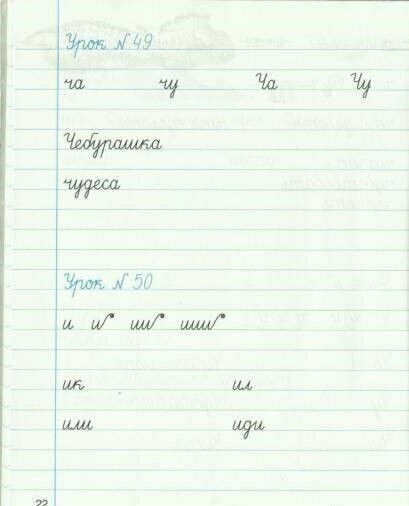 Урок № 49
ча чу Ча Чу
Чебурашка
чудеса
Урок № 50
и и ии иии
ик ил
или иди
22